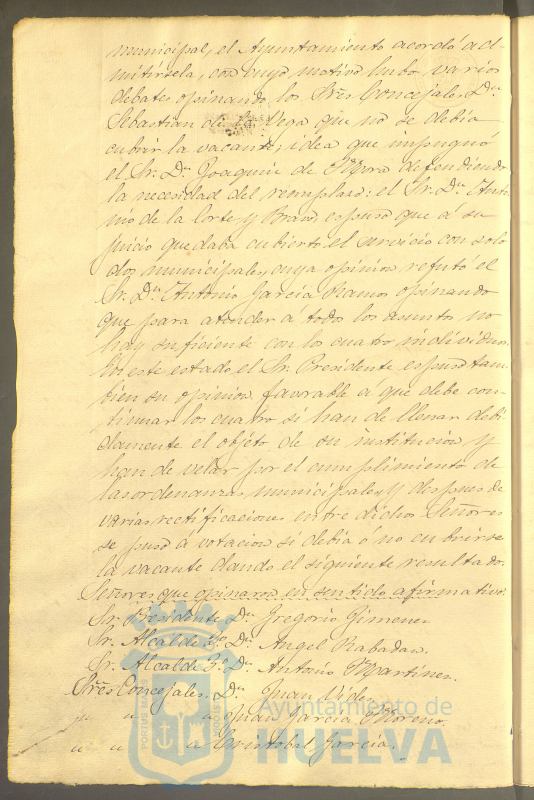 municipal, el Ayuntamiento acordó ad-
mitírsela, con cuyo motivo hubo varios
debates opinando los Sres Concejales, Dn
Sebastian de la Vega que no se debia
cubrir la vacante, idea que impugnó
el Sr. Dn Joaquin de Mora defendiendo
la necesidad del remplazo: el Sr. Dn Anto-
nio de la Corte y Bravo espuso que á su
juicio quedaba cubierto el servicio con solo
dos municipales, cuya opinion refutó el
Sr. Dn Antonio Garcia Ramos opinando
que para atender á todos los asuntos no
hay suficiente con los cuatro individuos.
En este estado el Sr. Presidente espuso tam-
bien su opinion favorable á que debe con-
tinuar los cuatro si han de llenar debi-
damente el objeto de su institucion y
han de velar por el cumplimiento de
las ordenanzas municipales, y despues de
varias rectificaciones entre dichos Señores
se puso á votacion si debia ó no cubrirse
la vacante dando el siguiente resultado.
Señores que opinaron en sentido afirmativo.
Sr. Presidente Dn Gregorio Gimenez
Sr. Alcalde 2o Dn Angel Rabadan.
Sr. Alcalde 3o Dn Antonio Martinez.
Sres Concejales. Dn Juan Vides
" " " Juan Garcia Moreno
" " " Cristobal Garcia.
Ayuntamiento de
HUELVA